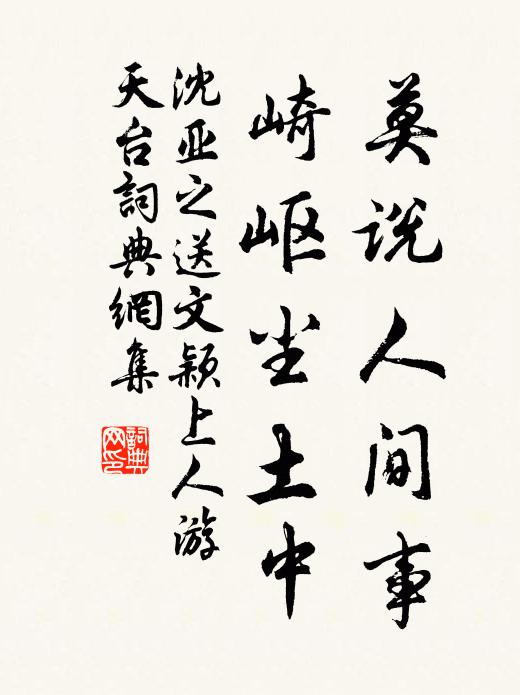 莫说人间事
崎岖尘土中
沈亚之送文颖上人游
天台詞典網集
詞典
网印